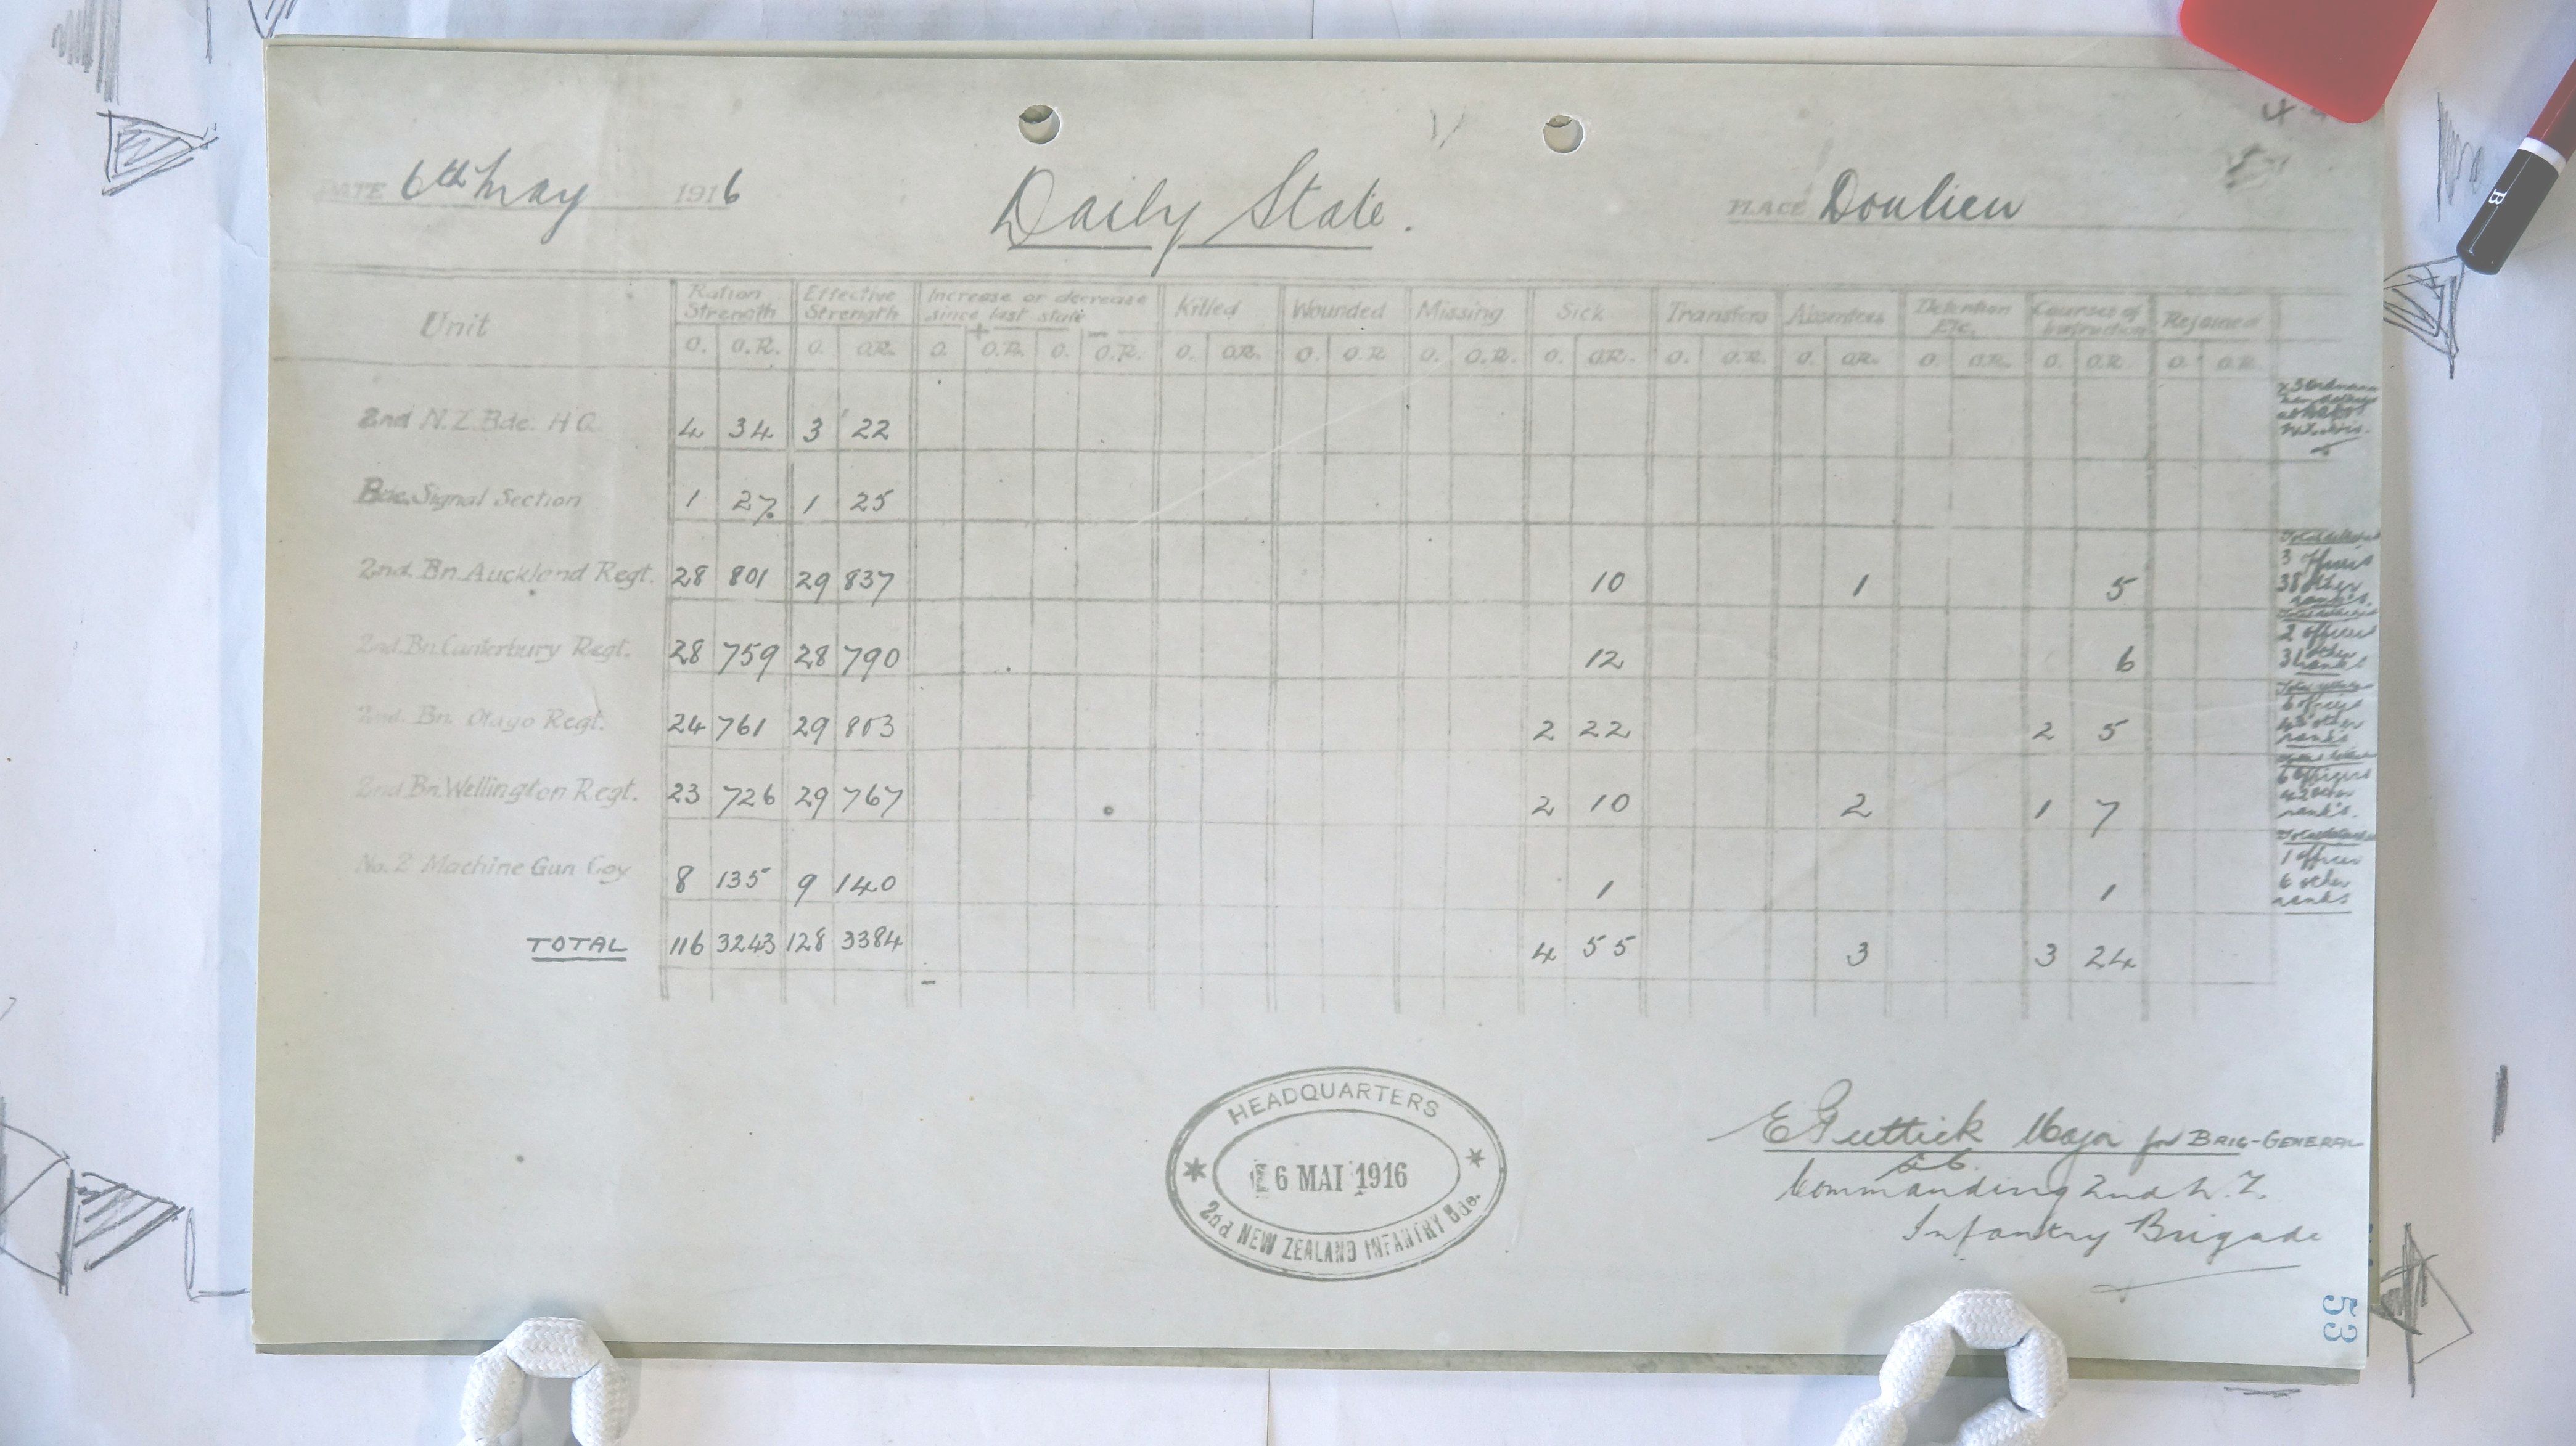 DATE 6th May 1916
Daily State.
PLACE Doulieu
Unit
Ration Strength
Effective Strength
Increase or decrease since last state
+ −
Killed
Wounded
Missing
Sick
Transfers
Absentees
Detention Etc.
Courses of Instruction
Rejoined
O. O.R. O. O.R. O. O.R. O. O.R. O. O.R. O. O.R. O. O.R. O. O.R. O. O.R. O. O.R. O. O.R. O. O.R. O. O.R.
2nd N.Z. Bde. H Q 4 34 3 22
Bde. Signal Section 1 27. 1 25
2nd. Bn. Auckland Regt. 28 801 29 837 10 1 5
3 Officers
38 other
ranks.
2nd. Bn. Canterbury Regt. 28 759 28 790 12 6
2 officers
31 other
ranks
2nd. Bn. Otago Regt. 24 761 29 803 2 22 2 5
6 officers
43 other
ranks
2nd Bn. Wellington Regt. 23 726 29 767 2 10 2 1 7
6 Officers
42 other
ranks.
No. 2 Machine Gun Coy 8 135 9 140 1 1
1 officer
6 other
ranks
TOTAL 116 3243 128 3384 4 55 3 3 24
HEADQUARTERS
6 MAI 1916
2nd NEW ZEALAND INFANTRY Bde.
E Puttick Major for BRIG-GENERAL
Commanding 2nd N.Z.
Infantry Brigade
53
B